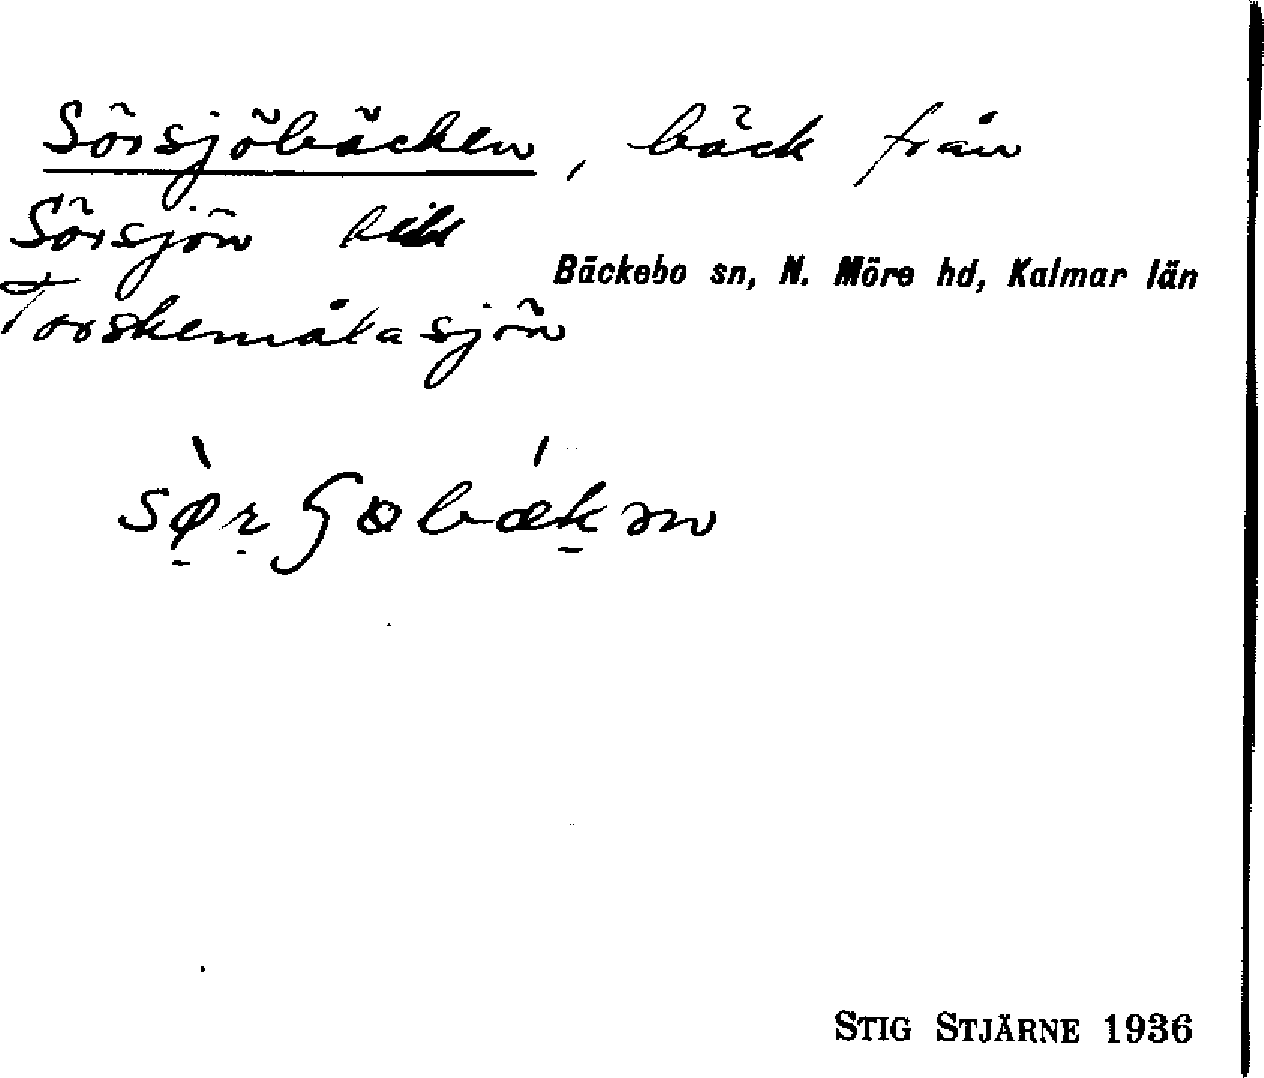 Sörsjöbäcken, bäck från
Sörsjön till
Bäckebo sn, N. Möre hd, Kalmar län
Torskemålasjön
STIG STJÄRNE 1936